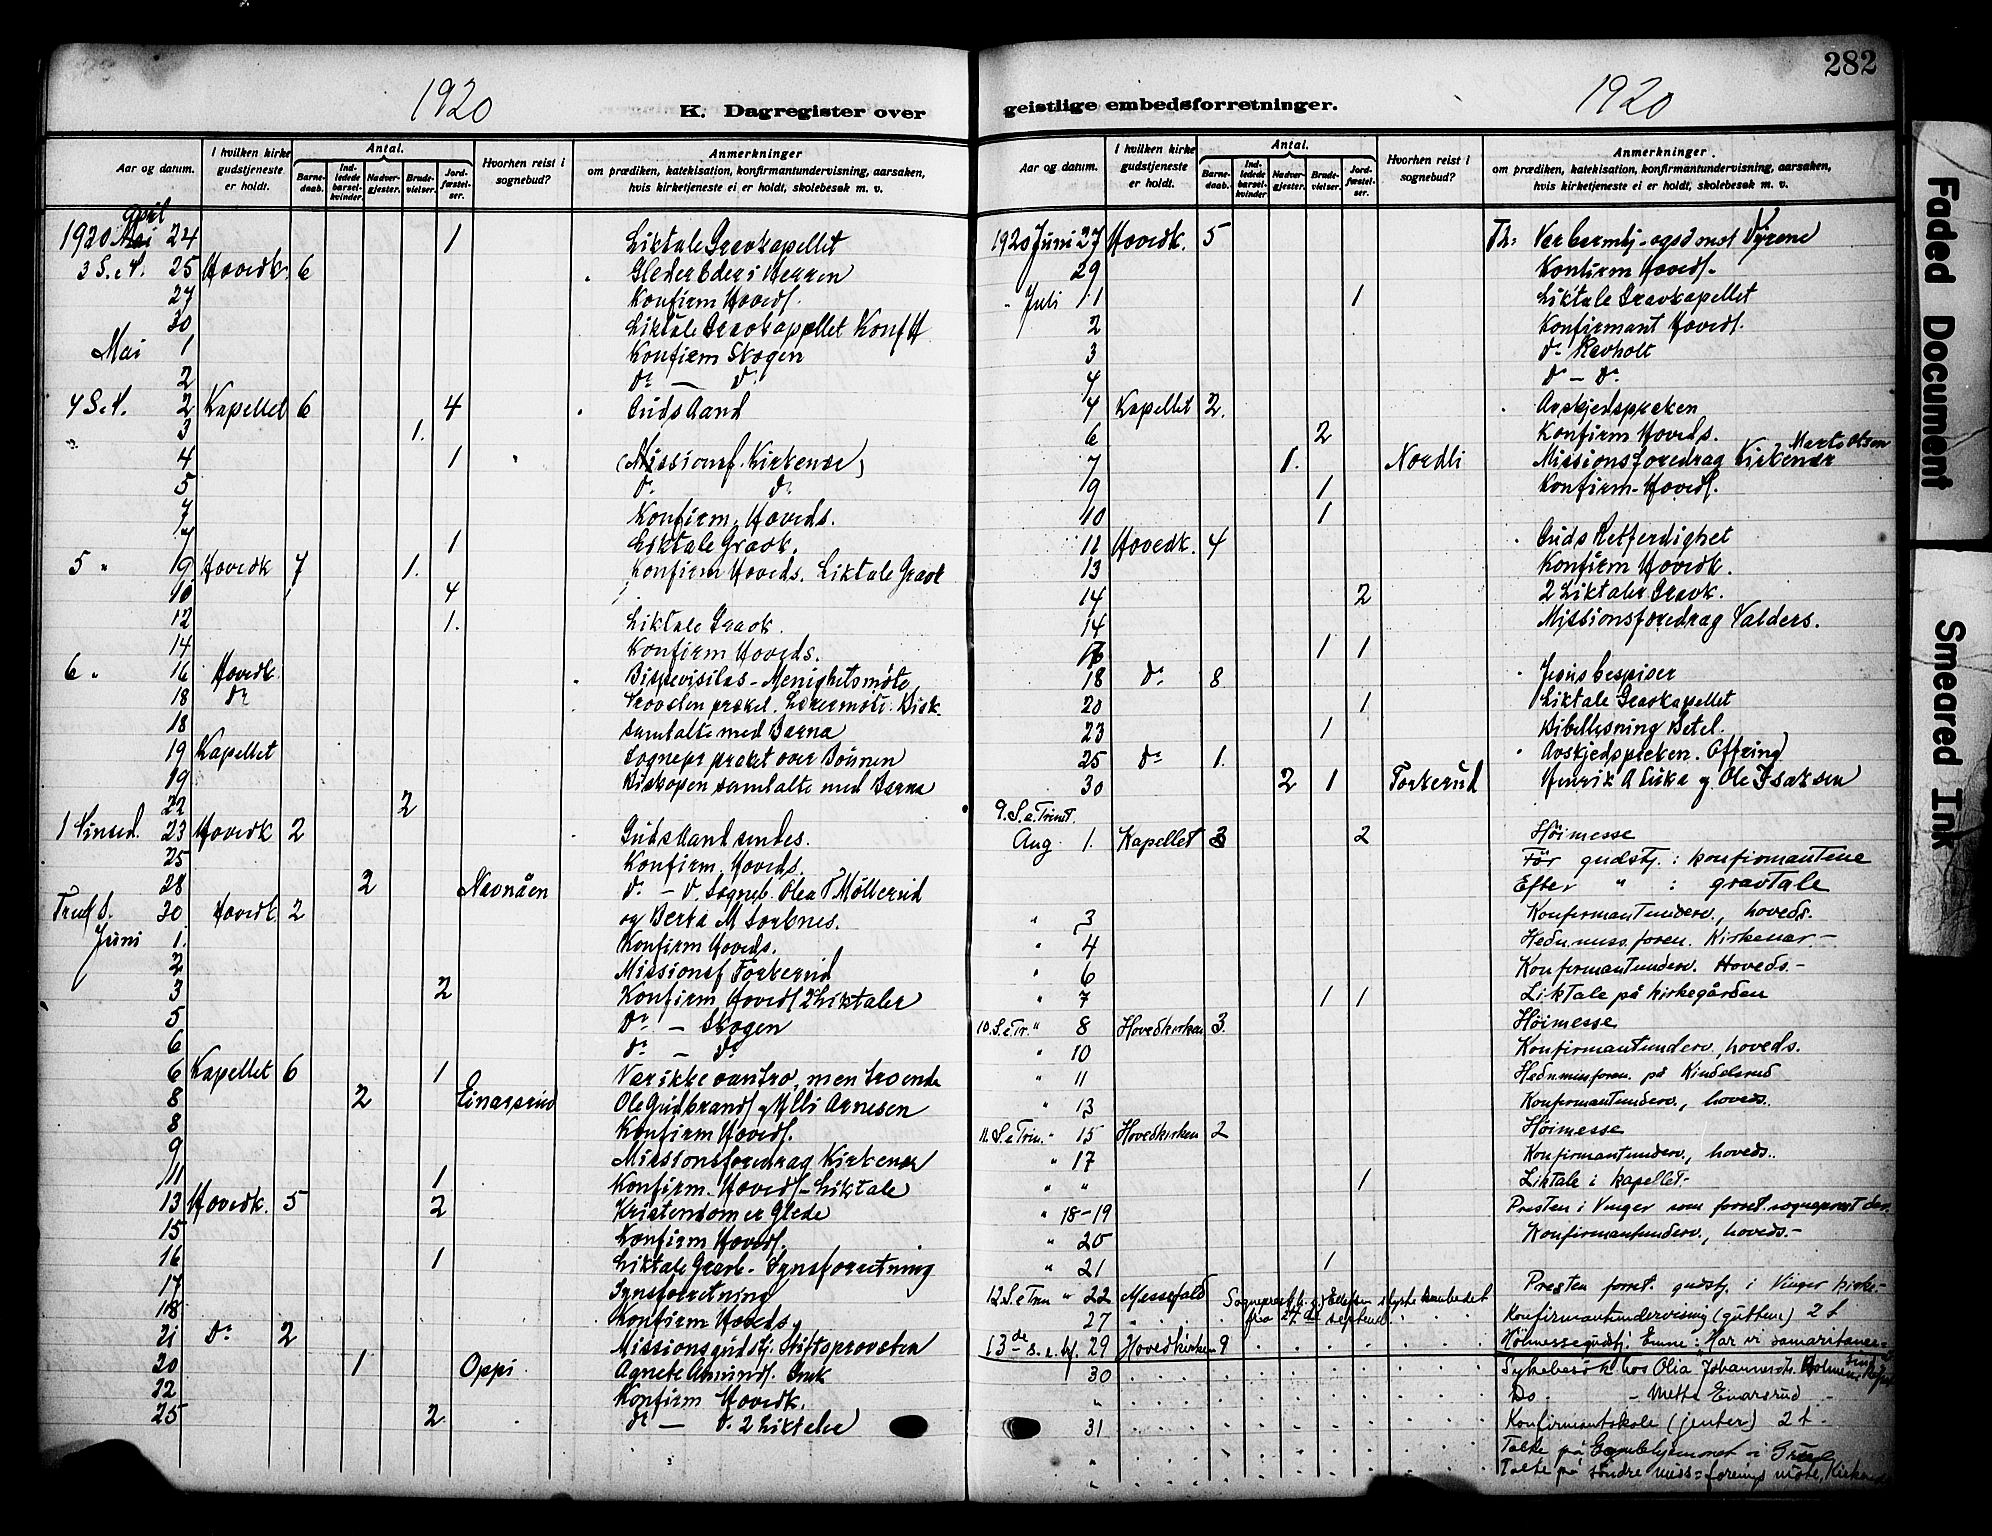 282
1920
K. Dagregister over
Aar og datum.
I hvilken kirke gudstjeneste er holdt.
Antal.
Barnedaab.
Indledede barselkvinder.
Nadvergjester.
Brudevielser.
Jordfæstelser.
Hvorhen reist i sognebud?
Anmerkninger
om prædiken, katekisation, konfirmantundervisning, aarsaken,
hvis kirketjeneste ei er holdt, skolebesøk m. v.
April
1920 Mai 24 1 Liktale Gravkapellet
3 S.e.P. 25 Hovedk. 6 Gleder Eder i Herren
27 Konfirm Hoveds.
30 Liktale Gravkapellet Konf H
Mai 1 Konfirm Skogen
2 Do — Do
4 S.e.P. 2 Kapellet 6 4 Guds Aand
3 1.
4 1 (Missionsf. Kirkenær)
5 Do Do
7 Konfirm. Hoveds.
7 1 Liktale Gravk.
5 " 9 Hovedk 7 1. Konfirm Hoveds. Liktale Gravk
10 4
12 1. Liktale Gravk.
14 Konfirm Hoveds.
6 " 16 Hovedk Bispevisitas - Menighetsmøte
18 Do Provsten præket. Lærermøte. Bisk.
18 samtalte med Barna
19 Kapellet Sognepr præket over Bønnen
19 Biskopen samtalte med Barna
22 2
1 Pinsed. 23 Hovedk 2 Guds Aand sendes.
25 Konfirm. Hoveds.
28 2 Navnåen Do - Do Sogneb. Olea P Møllerud
Tref S. 30 Hovedk 2 og Berta M
Juni 1. Konfirm Hoveds.
2 Missionsf Torkerud
3 2 Konfirm Hoveds 2 Liktaler
5 Do - Skogen
6 Do - Do
6 Kapellet 6 1 Vær ikke vantro, men troende
8 2 Einarsrud Ole Gudbrands og Milli Arnesen
8 Konfirm Hoveds.
9 Missionsforedrag Kirkenær
11 1 Konfirm. Hoveds - Liktale
13 Hovedk. 5 2 Kristendom er Glede
15 Konfirm Hoveds.
16 1 Liktale Gravk - Synsforretning
17 Synsforretning
18 Konfirm Hoveds
21 Do 2 Missionsgudstj. Stiftsprovsten
20 1 Oppi Agnete Amunds.
22 Konfirm Hovedk.
25 2 Do — Do. 2 Liktaler
geistlige embedsforretninger.
1920
Aar og datum.
I hvilken kirke gudstjeneste er holdt.
Antal.
Barnedaab.
Indledede barselkvinder.
Nadvergjester.
Brudevielser.
Jordfæstelser.
Hvorhen reist i sognebud?
Anmerkninger.
om prædiken, katekisation, konfirmantundervisning, aarsaken,
hvis kirketjeneste ei er holdt, skolebesøk m. v.
1920 Juni 27 Hovedk. 5 Th: Vær barmhj. ogs mot Dyrene
29 Konfirm Hoveds.
" Juli 1 1 Liktale Gravkapellet
2 Konfirmant Hoveds.
3 Do Revholt
4 Do - Do.
4 Kapellet 2. Avskjedspreken
6 2 Konfirm Hoveds.
7 1. Nordli Missionsforedrag Kirkenær
9 1 Konfirm. Hoveds.
10 1
11 Hovedk. 4 Guds Retferdighet
13 Konfirm Hovedk.
14 2 2 Liktaler Gravk.
14 Missionsforedrag Valders.
16 1 1
18 Do. 8 Jesus bespiser
20 1 Liktale Gravkapellet
23 1 Bibellesning Betel.
25 Do 1. Avskjedspreken. Offring
30 2 1 Torkerud Henrik A og Ole Isaksen
9. S. e Trinit.
Aug 1. Kapellet 3 2 Høimesse
Før gudstj.: konfirmantene
Efter " : gravtale
" 3 Konfirmantunderv., hoveds.
" 4 Hedn.miss.foren. Kirkenær. -
" 6 Konfirmantunderv. Hoveds. -
" 7 1 1 Liktale på kirkegården
10. S. e Tr. " 8 Hovedkirken 3. Høimesse
" 10 Konfirmantunderv., hoveds.
" 11 Hedn.missforen. på Kindelsrud
" 13 Konfirmantunderv., hoveds..
11. S. e Trin. " 15 Hovedkirken 2 Høimesse
" 17 Konfirmantunderv., hoveds..
" " 1 Liktale i kapellet -
" 18-19 Presten i Vinger som forret. sogneprest der.
" 20 Konfirmantunderv., hoveds. -
" 21 1
12. S. e Trin " 22 Messefald Presten forret. gudstj. i Vinger kirke -
Sogneprest styrte embedet
fra 27 Aug septemb.
27 Konfirmantundervisning (gutter) 2 t
13de S. e. tr. 29 Hovedkirken 9 Høimessegudstj. Emne: Har vi samaritaner-
30 Sykebesøk hos Olia Johannsdt. Holmen
" Do. - Mette Einarsrud -
31 Konfirmantskole (jenter) 2 t -
" Talte på Gamlehjemmet i
" Talte på søndre miss=forenings møte, Kirkenær
Faded Document
Smeared Ink